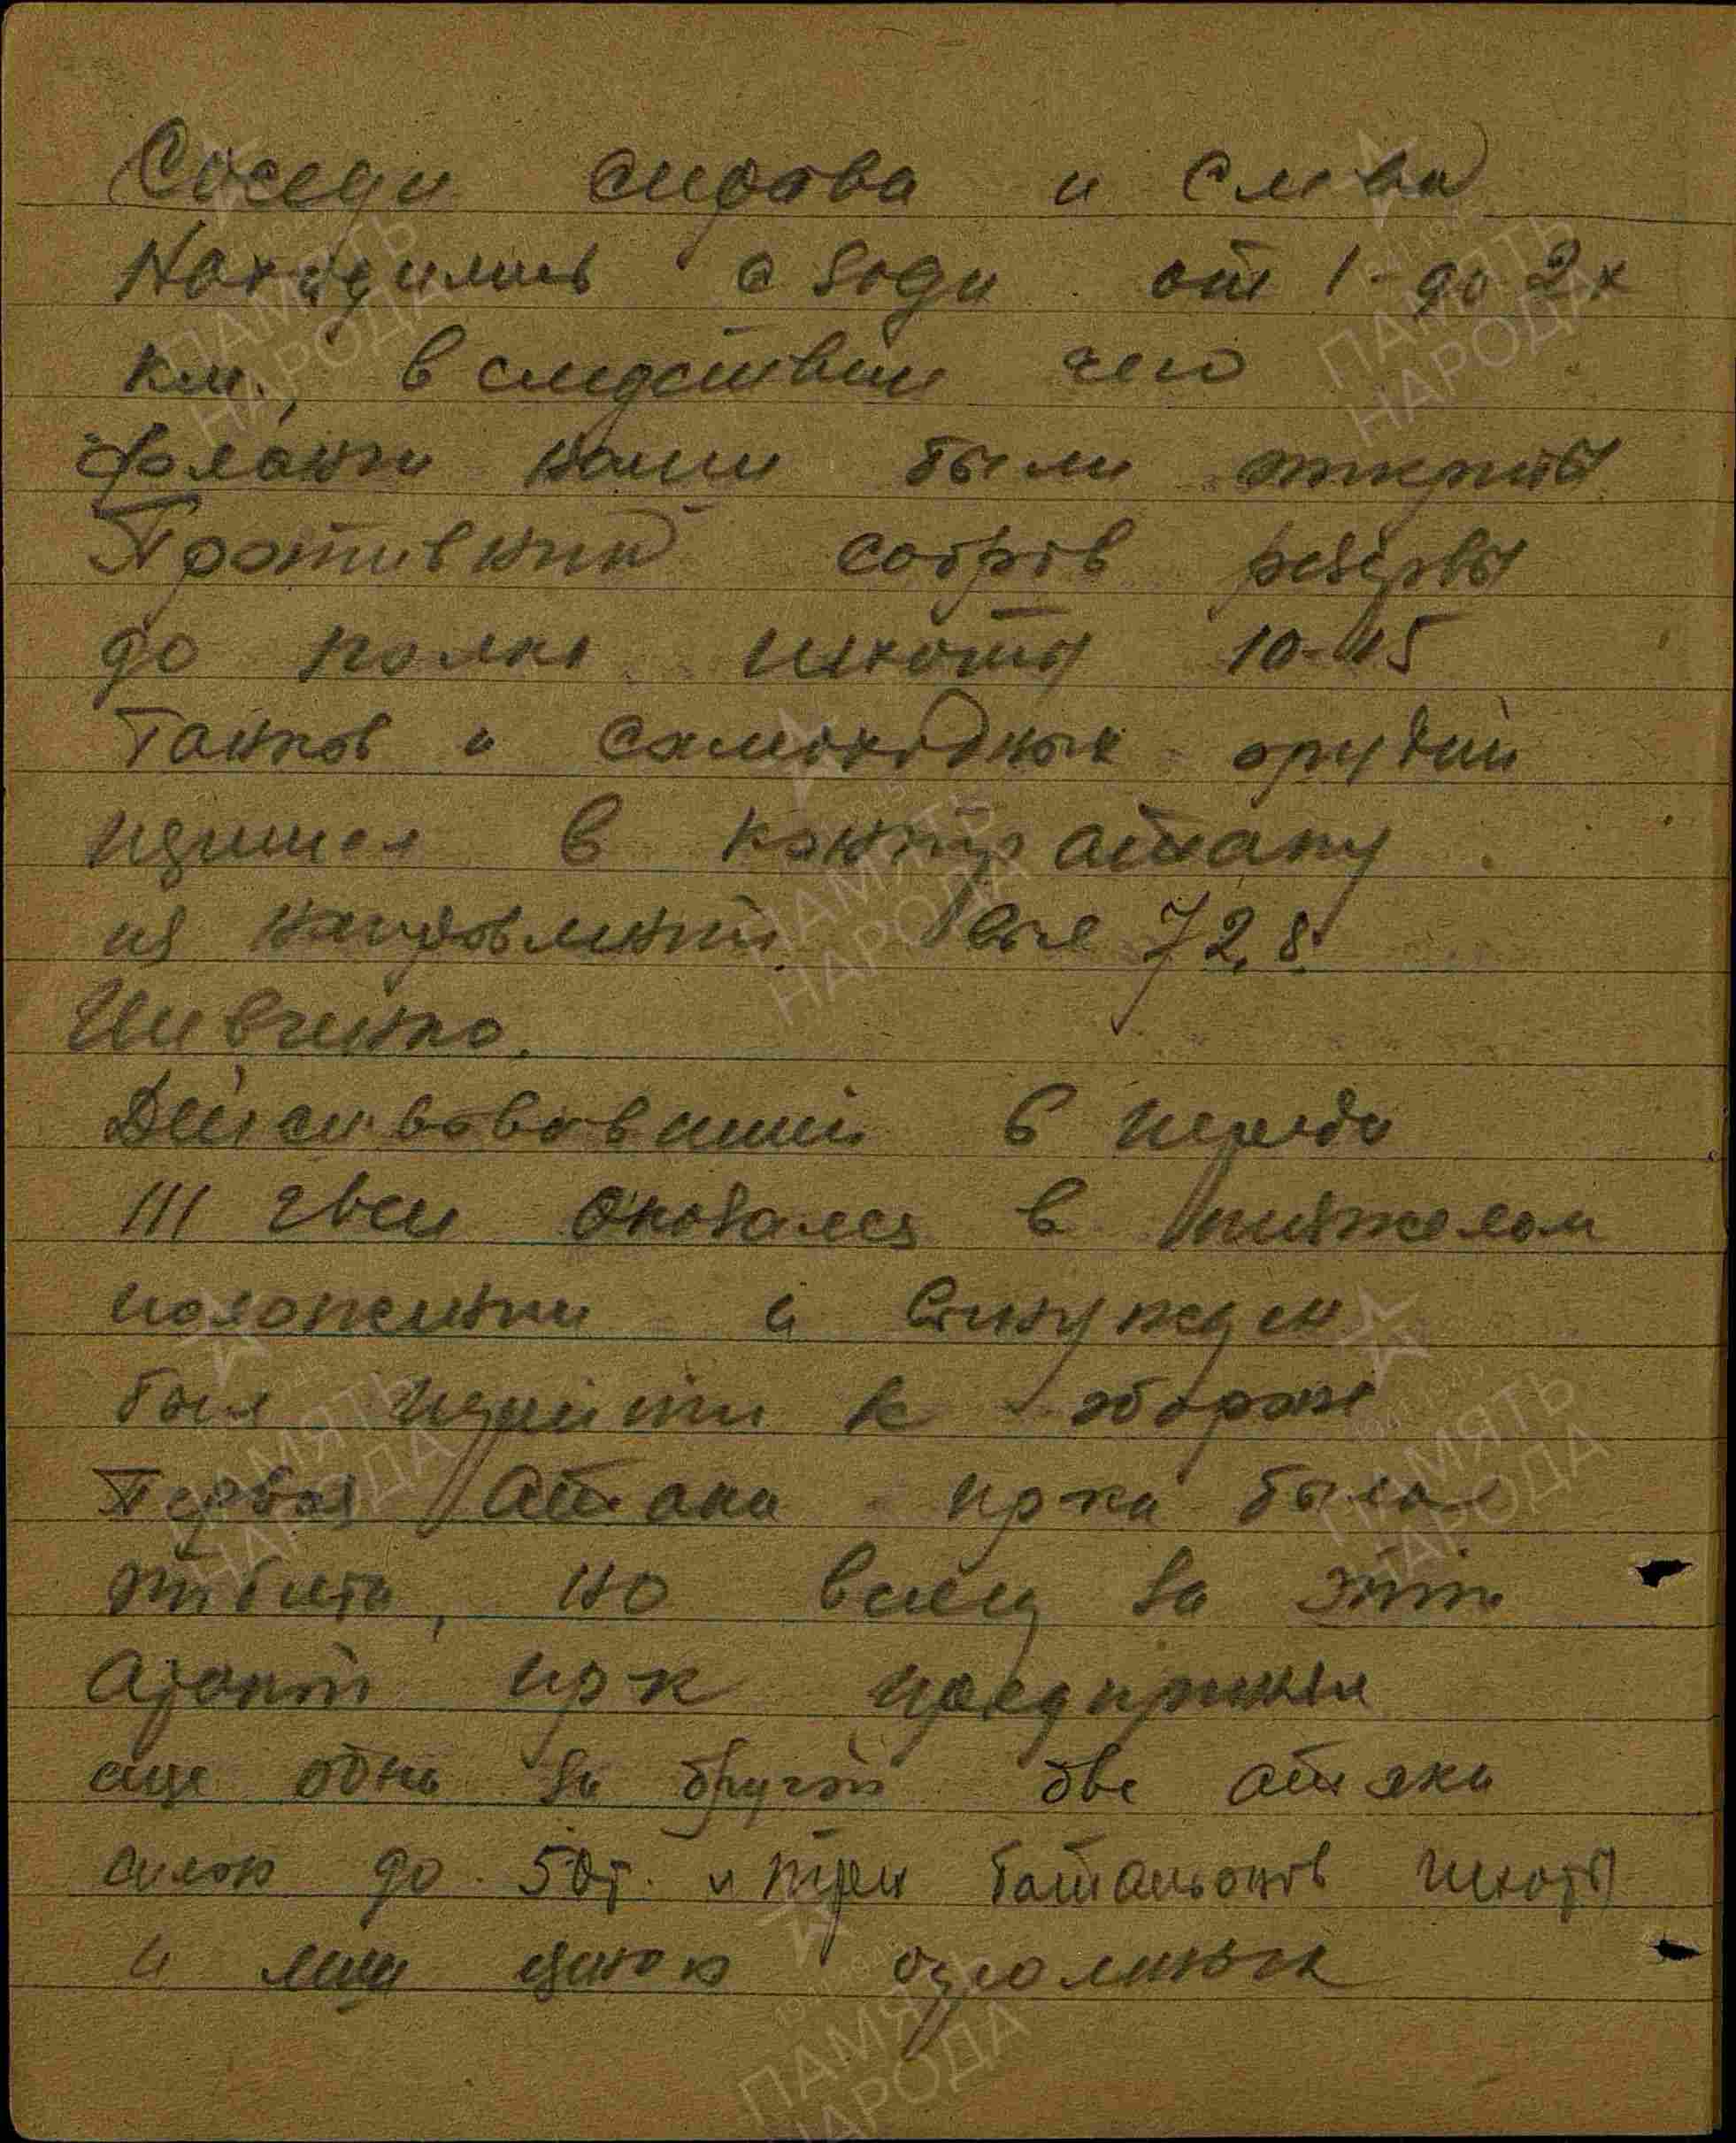 Соседи справа и слева
Находились сзади от 1-до 2х
км., в следствии чего
фланги наши были открыты
Противник собрав резервы
до полка пехоты 10-15
танков и самоходных орудий
перешел в контр атаку
из направлений Выс 72,8
Шевченко.
Действовавший в переди
III гвсп оказался в тяжелом
положении и вынужден
был перейти к обороне
Первая Атака пр-ка была
отбита, но вслед за этой
Атакой пр-к предпринял
еще одна за другой две атаки
силою до 50т. и трех батальонов пехоты
и лиш ценою огромных
ПАМЯТЬ НАРОДА